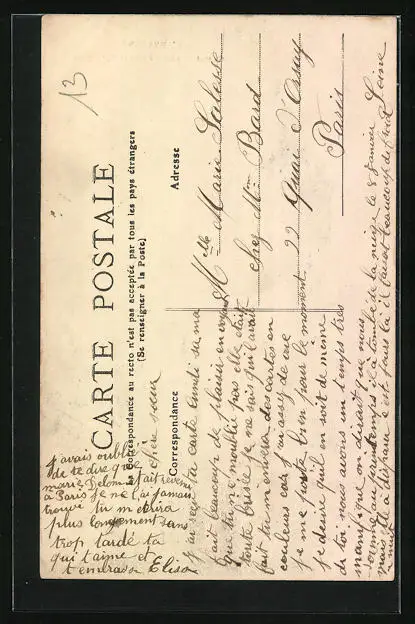 13
CARTE POSTALE
La Correspondance au recto n'est pas acceptée par tous les pays étrangers
(Se renseigner à la Poste)
Correspondance
Adresse
Mlle Marie
chez Mme Bard
22 Quai d'Orsay
Paris
Seine
chère sœur
j'ai reçu ta carte lundi sa ma
fait beaucoup de plaisir en voyant
que tu ne m'oublie pas elle était
toute brisée je ne sais qui l'avait
fait tu m'envera des cartes en
couleurs car j'ai assez de vue
je me porte bien pour le moment
je désir qu'il en soit de même
de toi nous avons un temps très
manifique on dirait que nous
somme au printemps il a tombé de la neige le 8 janvier
mais elle a disparu
j'avais oublié
de te dire que
marie Delom fait revenir
à Paris je ne l'ai jamais
trouvé tu m'écrira
plus longement sans
trop tardé ta
qui t'aime et
t'embrasse Elisa